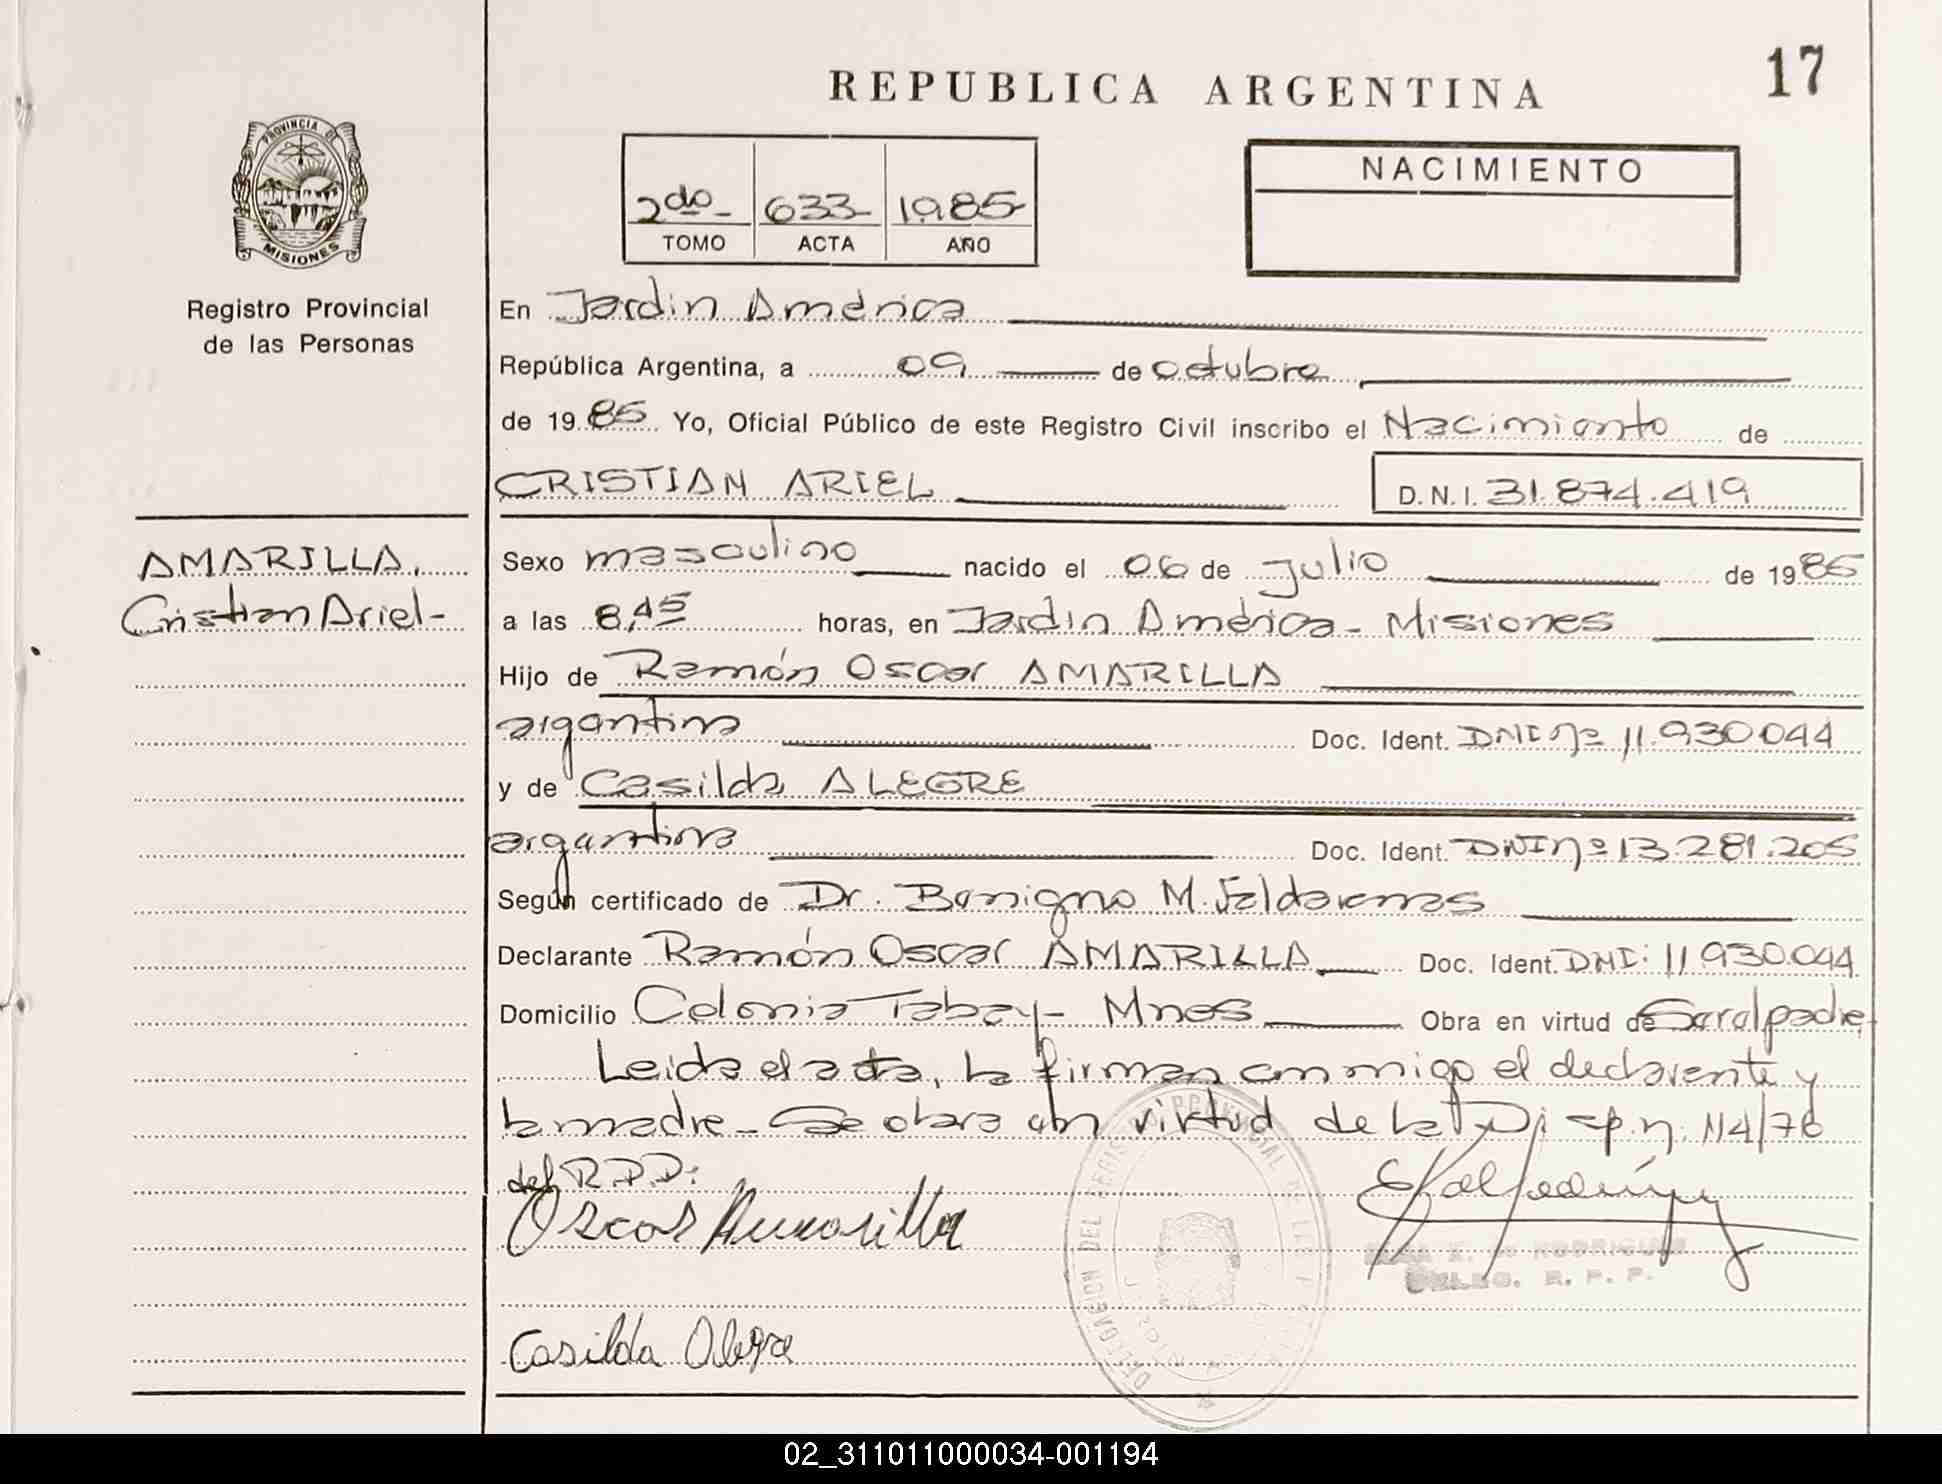 17
REPUBLICA ARGENTINA
PROVINCIA DE
MISIONES
Registro Provincial
de las Personas
2do 633 1985
TOMO ACTA AÑO
NACIMIENTO
En Jardín América
República Argentina, a 09 de octubre
de 1985 Yo, Oficial Público de este Registro Civil inscribo el Nacimiento de
CRISTIAN ARIEL D.N.I. 31.874.419
AMARILLA,
Cristian Ariel-
Sexo masculino nacido el 06 de Julio de 1985
a las 8,45 horas, en Jardín América - Misiones
Hijo de Ramón Oscar AMARILLA
argentina Doc. Ident. DNI nº 11.930.044
y de Casilda ALEGRE
argentina Doc. Ident. DNI nº 13.281.205
Según certificado de Dr. Benigno M.
Declarante Ramón Oscar AMARILLA Doc. Ident. DNI: 11.930.044
Domicilio Colonia Tabay - Mnes Obra en virtud de Ser el padre
Leida el acta, la firman conmigo el declarante y
la madre - Se obra en virtud de la Disp. n. 114/76
del R.P.P.
Oscar Amarilla
RODRIGUEZ
DELEG. R. P. P.
DELEGACION DEL REGISTRO PROVINCIAL DE LAS
Casilda Alegre
02_311011000034-001194